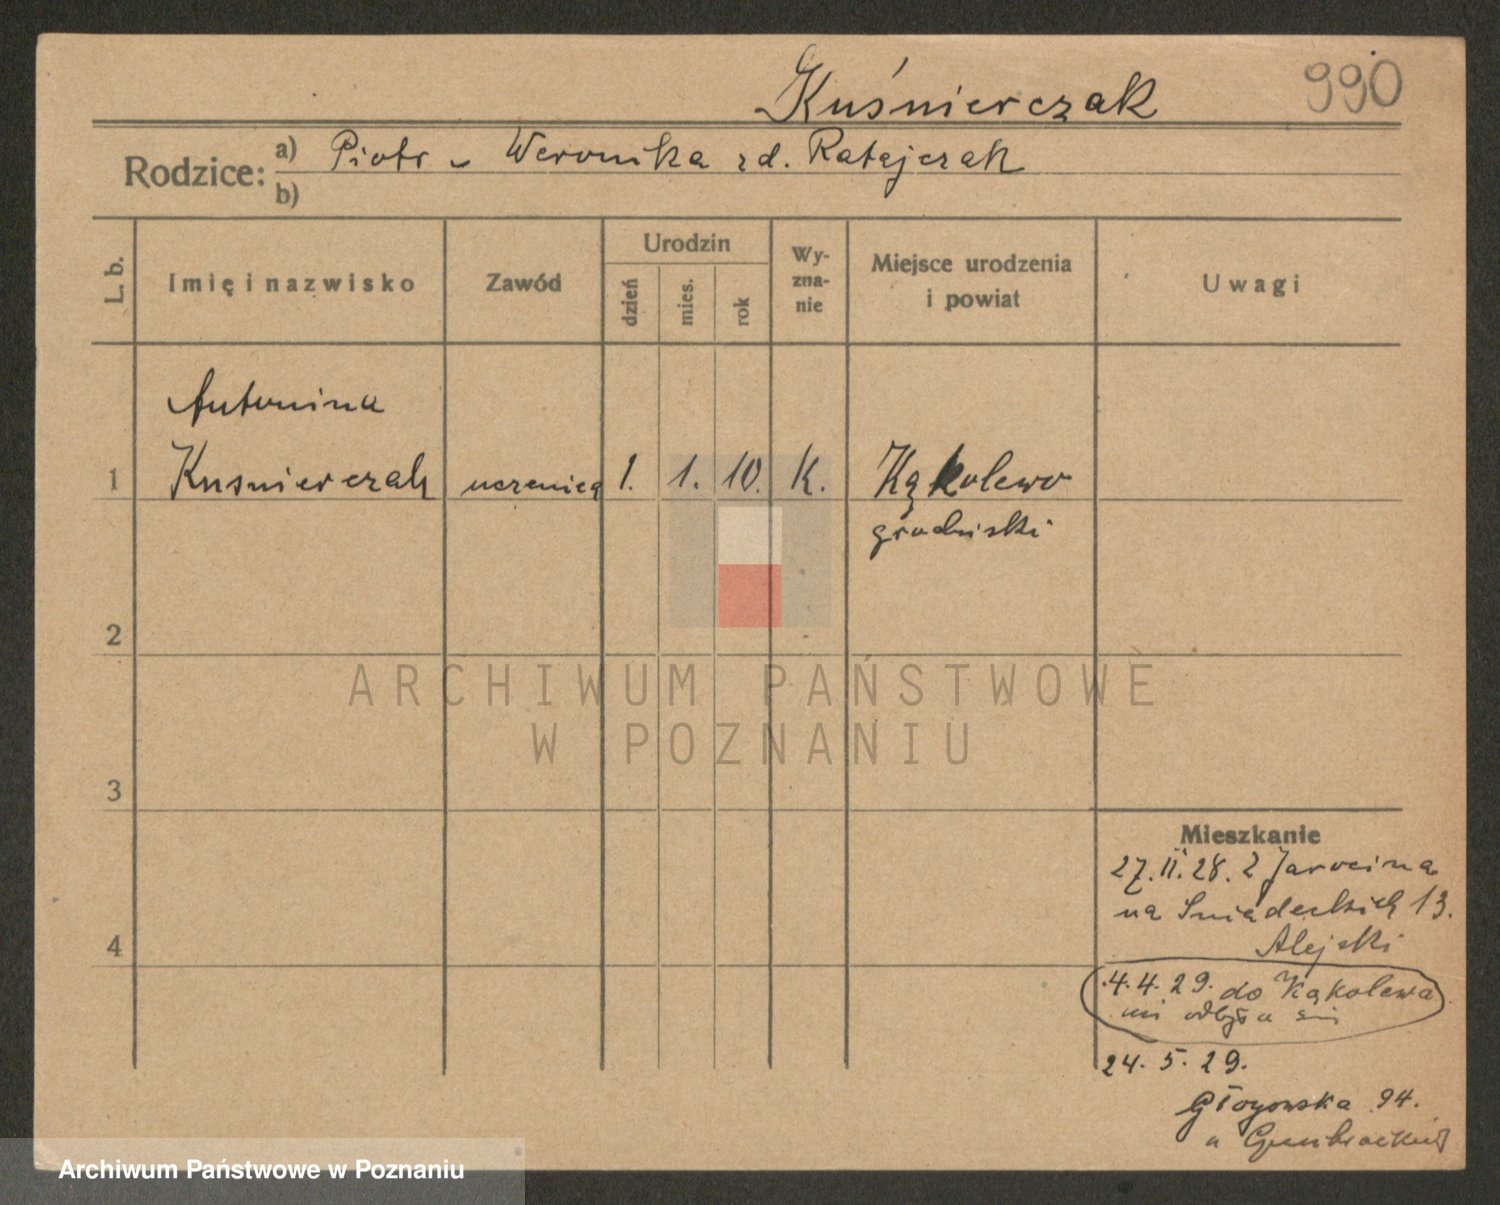 Kuśnierczak
990
Rodzice:
a) Piotr – Weronika zd. Ratajczak
b)
L. b.
Imię i nazwisko
Zawód
Urodzin
dzień
mies.
rok
Wy-
zna-
nie
Miejsce urodzenia
i powiat
Uwagi
Antonina
1 Kusnierczak uczenica 1. 1. 10. K. Kąkolewo
grodziski
2
3
4
Mieszkanie
27.II.28. z Jarocina
na Sniadeckich 13.
Alejski
4.4.29. do Kąkolewa
nie odbyła się
24.5.29.
Głogowska 94.
u
ARCHIWUM PAŃSTWOWE
W POZNANIU
Archiwum Państwowe w Poznaniu